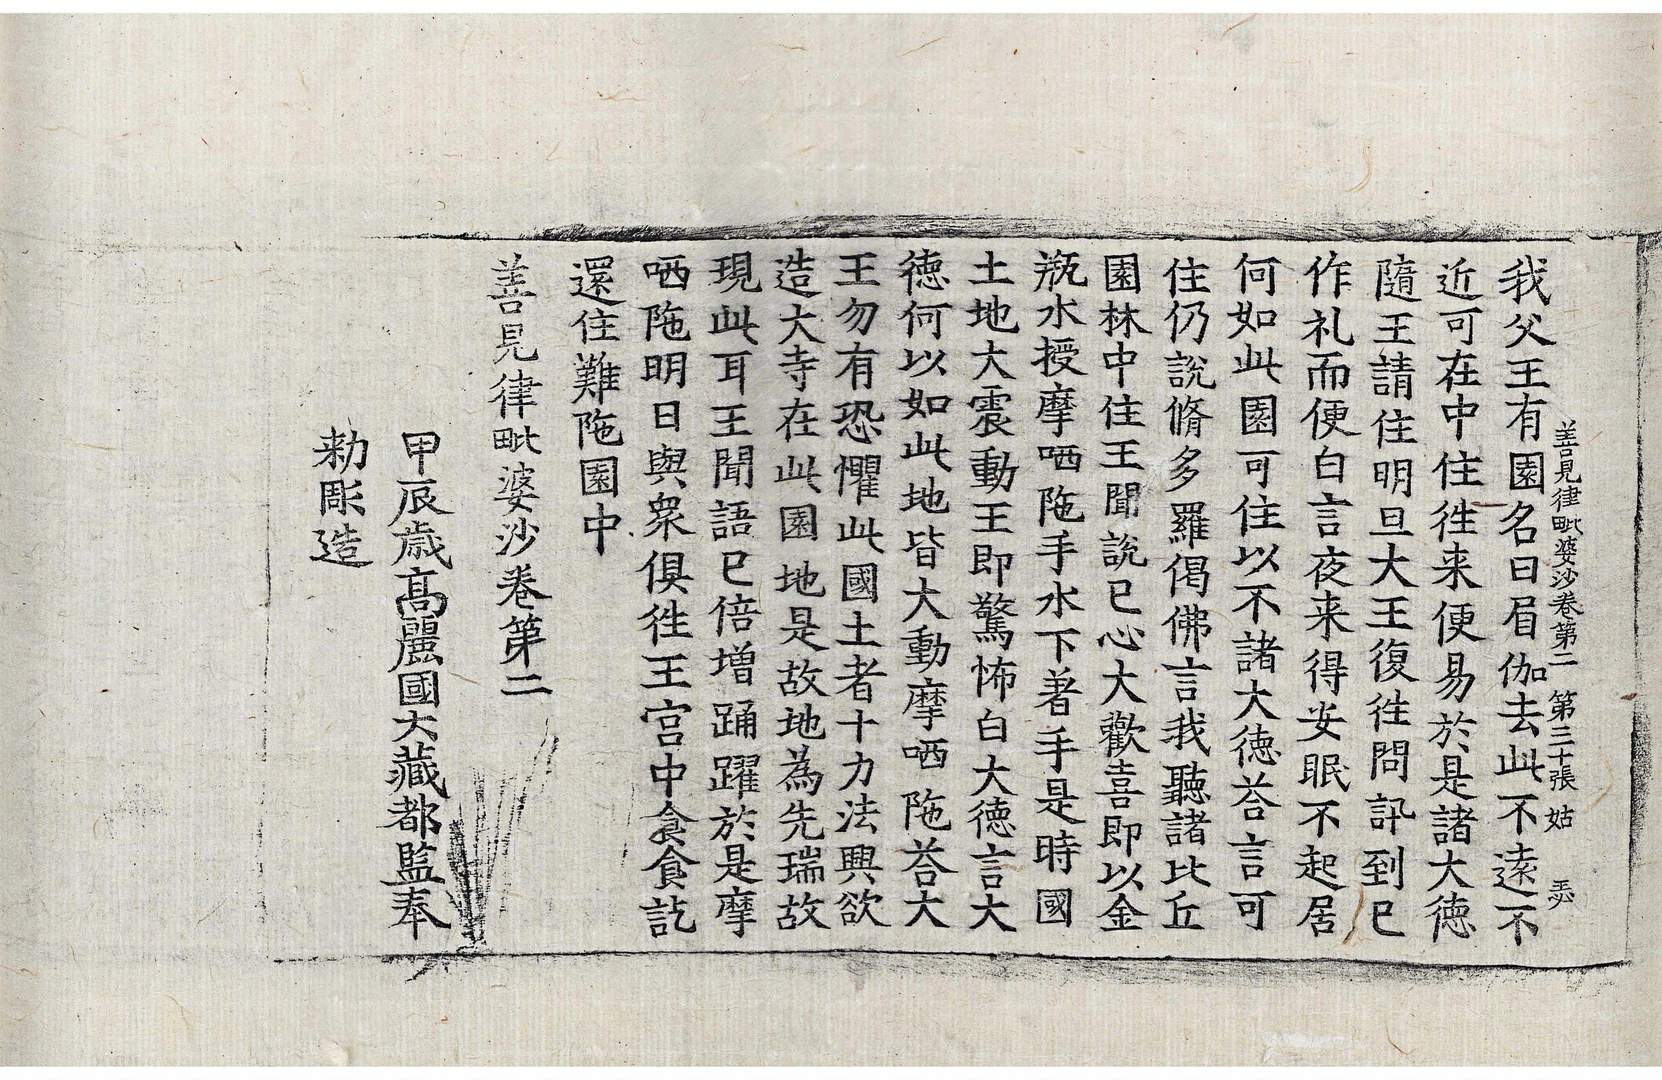 善見律毗婆沙卷第二　第三十張　姑
我父王有園名曰眉伽去此不遠不
近可在中住徃来便易於是諸大德
隨王請住明旦大王復徃問訊到已
作礼而便白言夜来得安眠不起居
何如此園可住以不諸大德荅言可
住仍說脩多羅偈佛言我聽諸比丘
園林中住王聞說已心大歡喜即以金
瓶水授摩哂陁手水下著手是時國
土地大震動王即驚怖白大德言大
德何以如此地皆大動摩哂陁荅大
王勿有恐懼此國土者十力法興欲
造大寺在此園地是故地為先瑞故
現此耳王聞語已倍增踊躍於是摩
哂陁明日與衆俱徃王宮中食食訖
還住難陁園中
善見律毗婆沙卷第二
甲辰歳髙麗國大藏都監奉
勑彫造